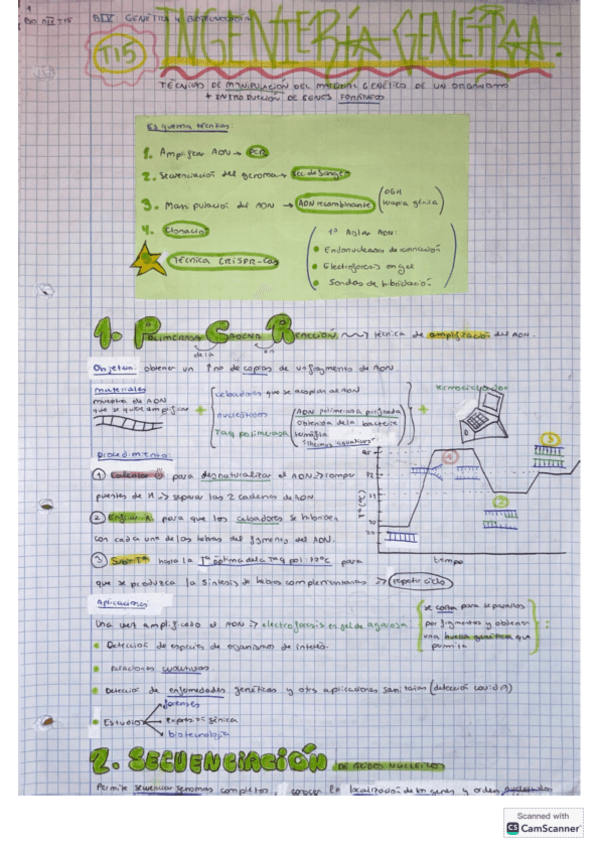 1
BIO BIV T15
BIV GENÉTICA Y BIOTECNOLOGÍA
T15
INGENIERÍA GENÉTICA.
TÉCNICAS DE MANIPULACIÓN DEL MATERIAL GENÉTICO DE UN ORGANISMO
+ INTRODUCCIÓN DE GENES FORÁNEOS
Esquema técnicas:
1. Amplificar ADN → PCR
2. Secuenciación del genoma → Sec. de Sanger
3. Manipulación del ADN → ADN recombinante (OGM
terapia génica)
4. Clonación
Técnica CRISPR-Cas
1º Aislar ADN:
Endonucleasas de restricción
Electroforesis en gel
Sondas de hibridación
1. POLIMERASA CADENA REACCIÓN → técnica de amplificación del ADN
de la
en
Objetivo: obtener un ↑ no de copias de un fragmento de ADN
materiales
muestra de ADN
que se quiere amplificar
+
cebadores que se acoplan al ADN
nucleótidos
TAQ polimerasa (ADN polimerasa purificada
obtenida de la bacteria
termófila
"Thermus aquaticus")
+
termociclador
procedimiento:
1 Calentar para desnaturalizar el ADN → romper
puentes de H → separar las 2 cadenas de ADN
2 Enfriar para que los cebadores se hibriden
con cada una de las hebras del fgmento del ADN.
3 Subir Tª hasta la Tª óptima de la TAQ pol: 72ºC para
que se produzca la síntesis de hebras complementarias → repetir ciclo
95
72
1
2
3
tiempo
Aplicaciones
Una vez amplificado el ADN → electroforesis en gel de agarosa
se corta para separarlos
por fragmentos y obtener
una huella genética que
permita
:
Detección de especies de organismos de interés.
relaciones evolutivas.
Detección de enfermedades genéticas y otras aplicaciones sanitarias (detección covid19)
Estudios
forenses
expresión génica
biotecnología
2. SECUENCIACIÓN DE ÁCIDOS NUCLEICOS
Permite secuenciar genomas completos, conocer la localización de los genes y orden
Scanned with
CS CamScanner